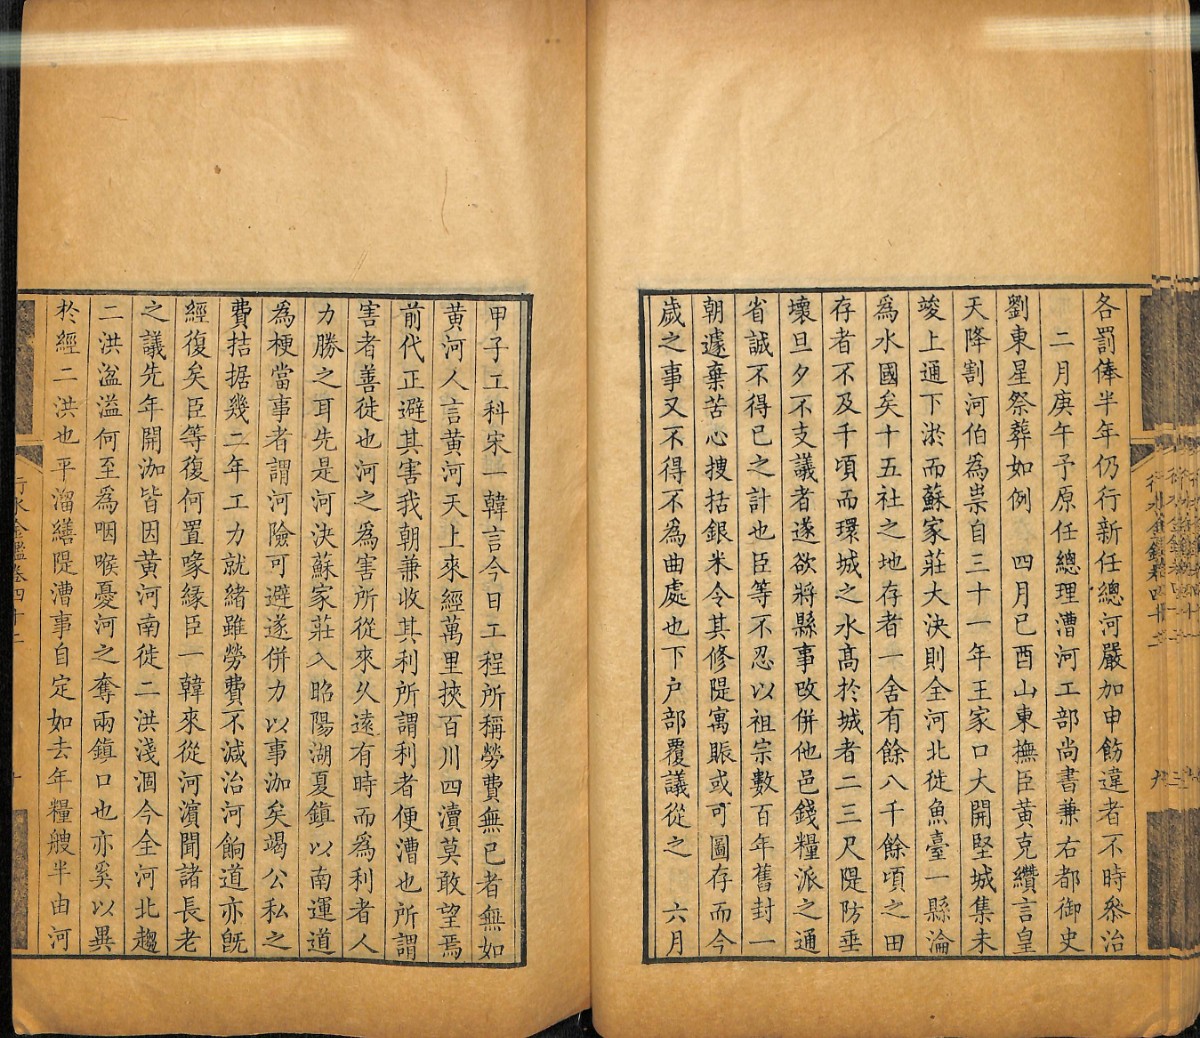 各罰俸半年仍行新任總河嚴加申飭違者不時叅治
二月庚午予原任總理漕河工部尚書兼右都御史
劉東星祭葬如例 四月己酉山東撫臣黃克纘言皇
天降割河伯為祟自三十一年王家口大開堅城集未
竣上通下淤而蘇家莊大決則全河北徙魚臺一縣淪
為水國矣十五社之地存者一舍有餘八千餘頃之田
存者不及千頃而環城之水髙於城者二三尺隄防垂
壞旦夕不支議者遂欲將縣事改併他邑錢糧派之通
省誠不得已之計也臣等不忍以祖宗數百年舊封一
朝遽棄苦心搜括銀米令其修隄寓賑或可圖存而今
歲之事又不得不為曲處也下户部覆議從之 六月
甲子工科宋一韓言今日工程所稱勞費無已者無如
黃河人言黃河天上來經萬里挾百川四瀆莫敢望焉
前代正避其害我朝兼收其利所謂利者便漕也所謂
害者善徙也河之為害所從來乆遠有時而爲利者人
力勝之耳先是河決蘇家莊入昭陽湖夏鎮以南運道
為梗當事者謂河險可避遂併力以事泇矣竭公私之
費拮据幾二年工力就緒雖勞費不減治河餉道亦既
經復矣臣等復何置喙緣臣一韓來從河濵聞諸長老
之議先年開泇皆因黃河南徙二洪淺涸今全河北趨
二洪溢溢何至爲咽喉憂河之奪兩鎮口也亦奚以異
於經二洪也平溜繕隄漕事自定如去年糧艘半由河
行水金鑑卷四十二